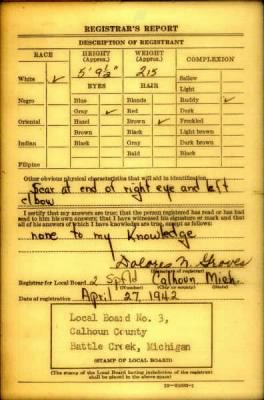 REGISTRAR'S REPORT
DESCRIPTION OF REGISTRANT
RACE HEIGHT (Approx.) WEIGHT (Approx.) COMPLEXION
5' 9½" 215
EYES HAIR
White ✓ Sallow
Light
Negro Blue Blonde Ruddy ✓
Gray ✓ Red Dark
Oriental Hazel Brown ✓ Freckled
Brown Black Light brown
Indian Black Gray Dark brown
Bald Black
Filipino
Other obvious physical characteristics that will aid in identification
Scar at end of right eye and left
elbow
I certify that my answers are true; that the person registered has read or has had
read to him his own answers; that I have witnessed his signature or mark and that
all of his answers of which I have knowledge are true, except as follows:
none to my Knowledge
Dolores N. Groves
(Signature of registrar)
Registrar for Local Board 2 Spfld Calhoun Mich.
(Number) (City or county) (State)
Date of registration April 27 1942
Local Board No. 3,
Calhoun County
Battle Creek, Michigan
(STAMP OF LOCAL BOARD)
(The stamp of the Local Board having jurisdiction of the registrant
shall be placed in the above space.)